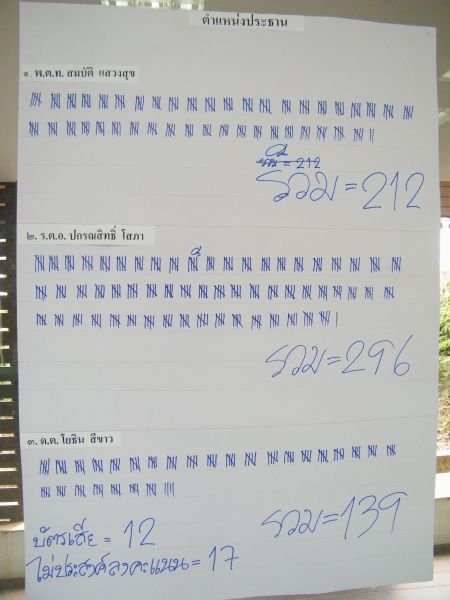 ตำแหน่งประธาน
๑. พ.ต.ท. สมบัติ แสวงสุข
รวม = 212
รวม = 212
๒. ร.ต.อ. ปกรณสิทธิ์ โสภา
รวม = 296
๓. ด.ต. โยธิน สีขาว
รวม = 139
บัตรเสีย = 12
ไม่ประสงค์ลงคะแนน = 17